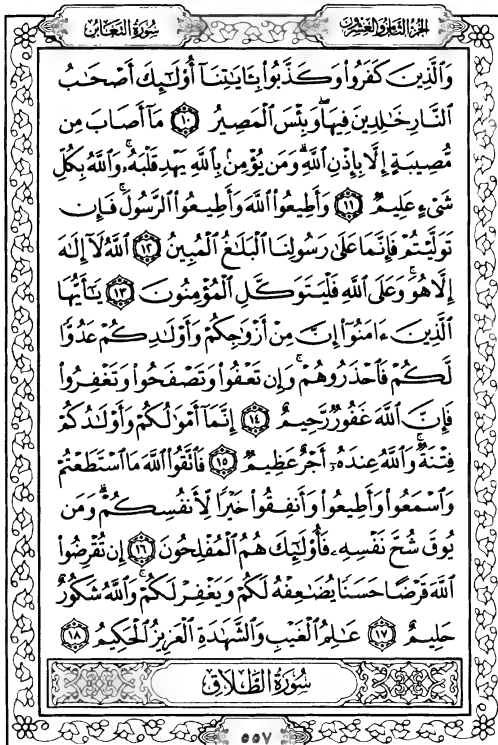 سُورَةُ التَّغَابُنِ
الجُزْءُ الثَّامِنُ وَالعِشْرُونَ
وَٱلَّذِينَ كَفَرُوا۟ وَكَذَّبُوا۟ بِـَٔايَـٰتِنَآ أُو۟لَـٰٓئِكَ أَصْحَـٰبُ
ٱلنَّارِ خَـٰلِدِينَ فِيهَا ۖ وَبِئْسَ ٱلْمَصِيرُ ١٠ مَآ أَصَابَ مِن
مُّصِيبَةٍ إِلَّا بِإِذْنِ ٱللَّهِ ۗ وَمَن يُؤْمِنۢ بِٱللَّهِ يَهْدِ قَلْبَهُۥ ۚ وَٱللَّهُ بِكُلِّ
شَىْءٍ عَلِيمٌ ١١ وَأَطِيعُوا۟ ٱللَّهَ وَأَطِيعُوا۟ ٱلرَّسُولَ ۚ فَإِن
تَوَلَّيْتُمْ فَإِنَّمَا عَلَىٰ رَسُولِنَا ٱلْبَلَـٰغُ ٱلْمُبِينُ ١٢ ٱللَّهُ لَآ إِلَـٰهَ
إِلَّا هُوَ ۚ وَعَلَى ٱللَّهِ فَلْيَتَوَكَّلِ ٱلْمُؤْمِنُونَ ١٣ يَـٰٓأَيُّهَا
ٱلَّذِينَ ءَامَنُوٓا۟ إِنَّ مِنْ أَزْوَٰجِكُمْ وَأَوْلَـٰدِكُمْ عَدُوًّا
لَّكُمْ فَٱحْذَرُوهُمْ ۚ وَإِن تَعْفُوا۟ وَتَصْفَحُوا۟ وَتَغْفِرُوا۟
فَإِنَّ ٱللَّهَ غَفُورٌ رَّحِيمٌ ١٤ إِنَّمَآ أَمْوَٰلُكُمْ وَأَوْلَـٰدُكُمْ
فِتْنَةٌ ۚ وَٱللَّهُ عِندَهُۥٓ أَجْرٌ عَظِيمٌ ١٥ فَٱتَّقُوا۟ ٱللَّهَ مَا ٱسْتَطَعْتُمْ
وَٱسْمَعُوا۟ وَأَطِيعُوا۟ وَأَنفِقُوا۟ خَيْرًا لِّأَنفُسِكُمْ ۗ وَمَن
يُوقَ شُحَّ نَفْسِهِۦ فَأُو۟لَـٰٓئِكَ هُمُ ٱلْمُفْلِحُونَ ١٦ إِن تُقْرِضُوا۟
ٱللَّهَ قَرْضًا حَسَنًا يُضَـٰعِفْهُ لَكُمْ وَيَغْفِرْ لَكُمْ ۚ وَٱللَّهُ شَكُورٌ
حَلِيمٌ ١٧ عَـٰلِمُ ٱلْغَيْبِ وَٱلشَّهَـٰدَةِ ٱلْعَزِيزُ ٱلْحَكِيمُ ١٨
سُورَةُ الطَّلَاقِ
٥٥٧